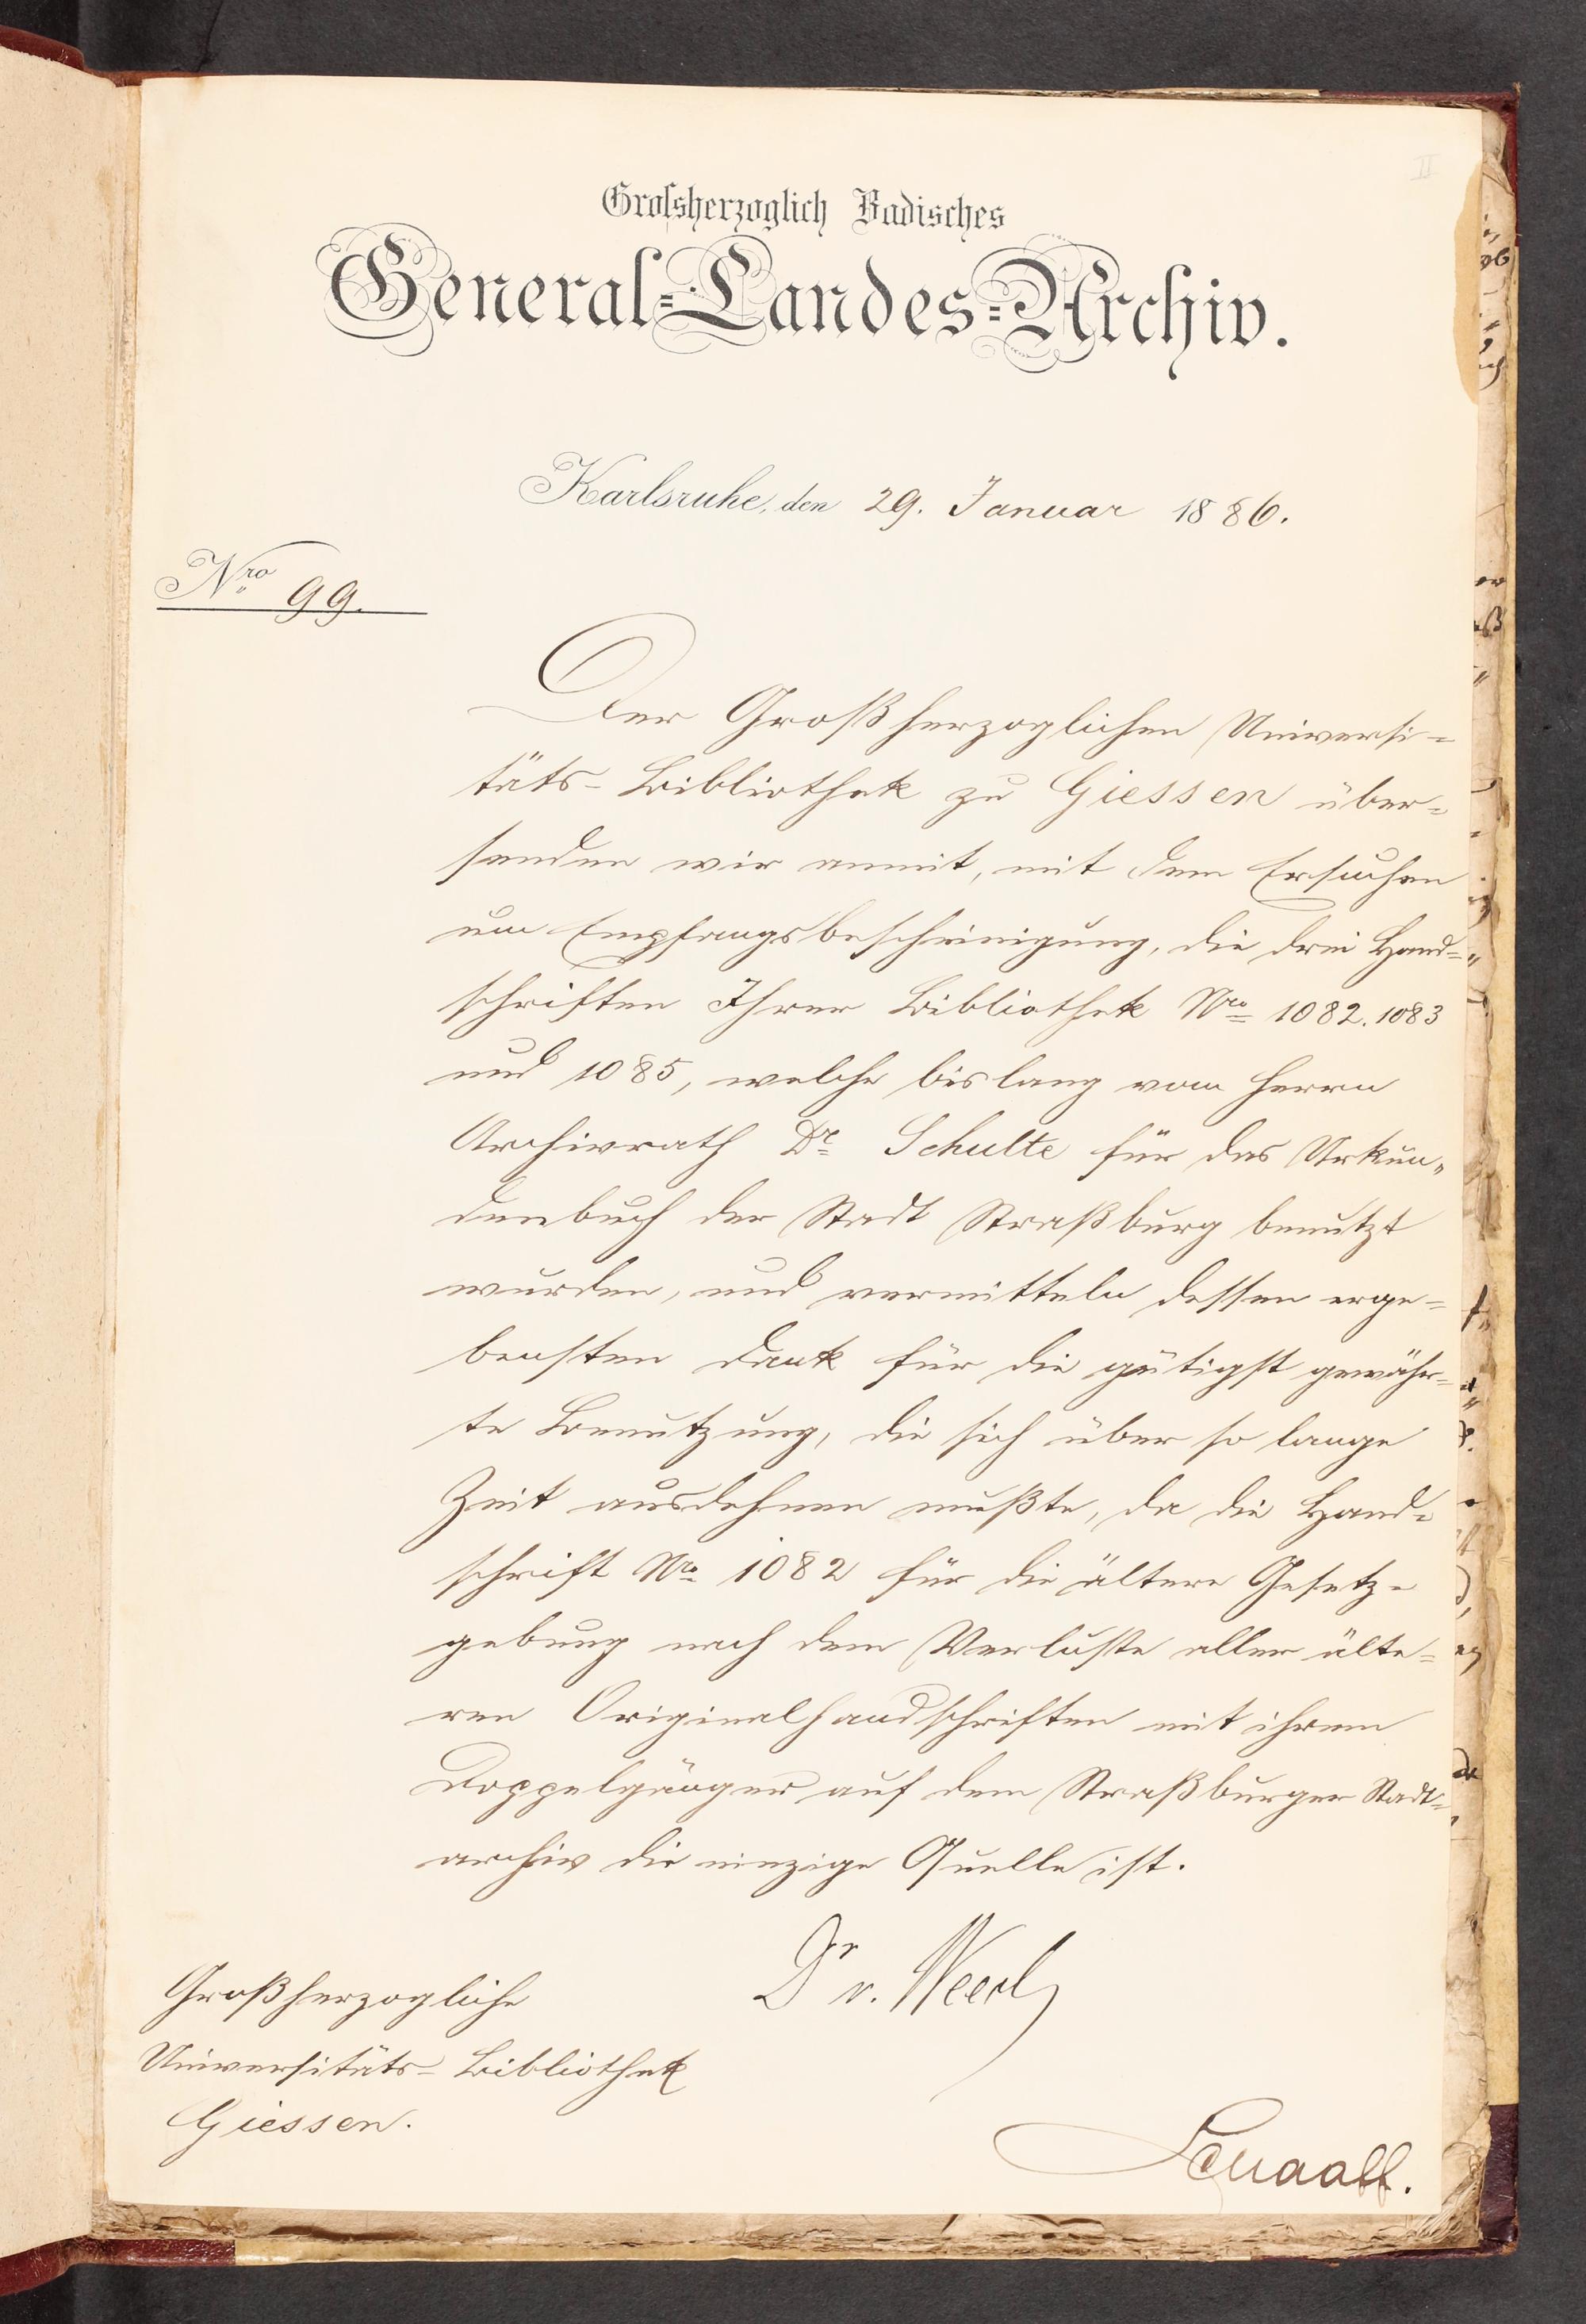 II
Großherzoglich Badisches
General-Landes-Archiv.
Karlsruhe, den 29. Januar 1886.
Nro 99.
Der Großherzoglichen Universi-
täts-Bibliothek zu Giessen über-
senden wir anmit, mit dem Ersuchen
um Empfangsbescheinigung, die drei Hand-
schriften Ihrer Bibliothek Nro 1082. 1083
und 1085, welche bislang vom Herrn
Archivrath Dr Schulte für das Urkun-
denbuch der Stadt Straßburg benutzt
wurden, und vermitteln dessen erge-
bensten Dank für die gütigst gewähr-
te Benutzung, die sich über so lange
Zeit ausdehnen mußte, da die Hand-
schrift Nro 1082 für die ältere Gesetz-
gebung nach dem Verluste aller älte-
ren Originalhandschriften mit ihrem
Doppelgänger auf dem Straßburger Stadt-
archiv die einzige Quelle ist.
Dr v. Weech
Großherzogliche
Universitäts-Bibliothek
Giessen.